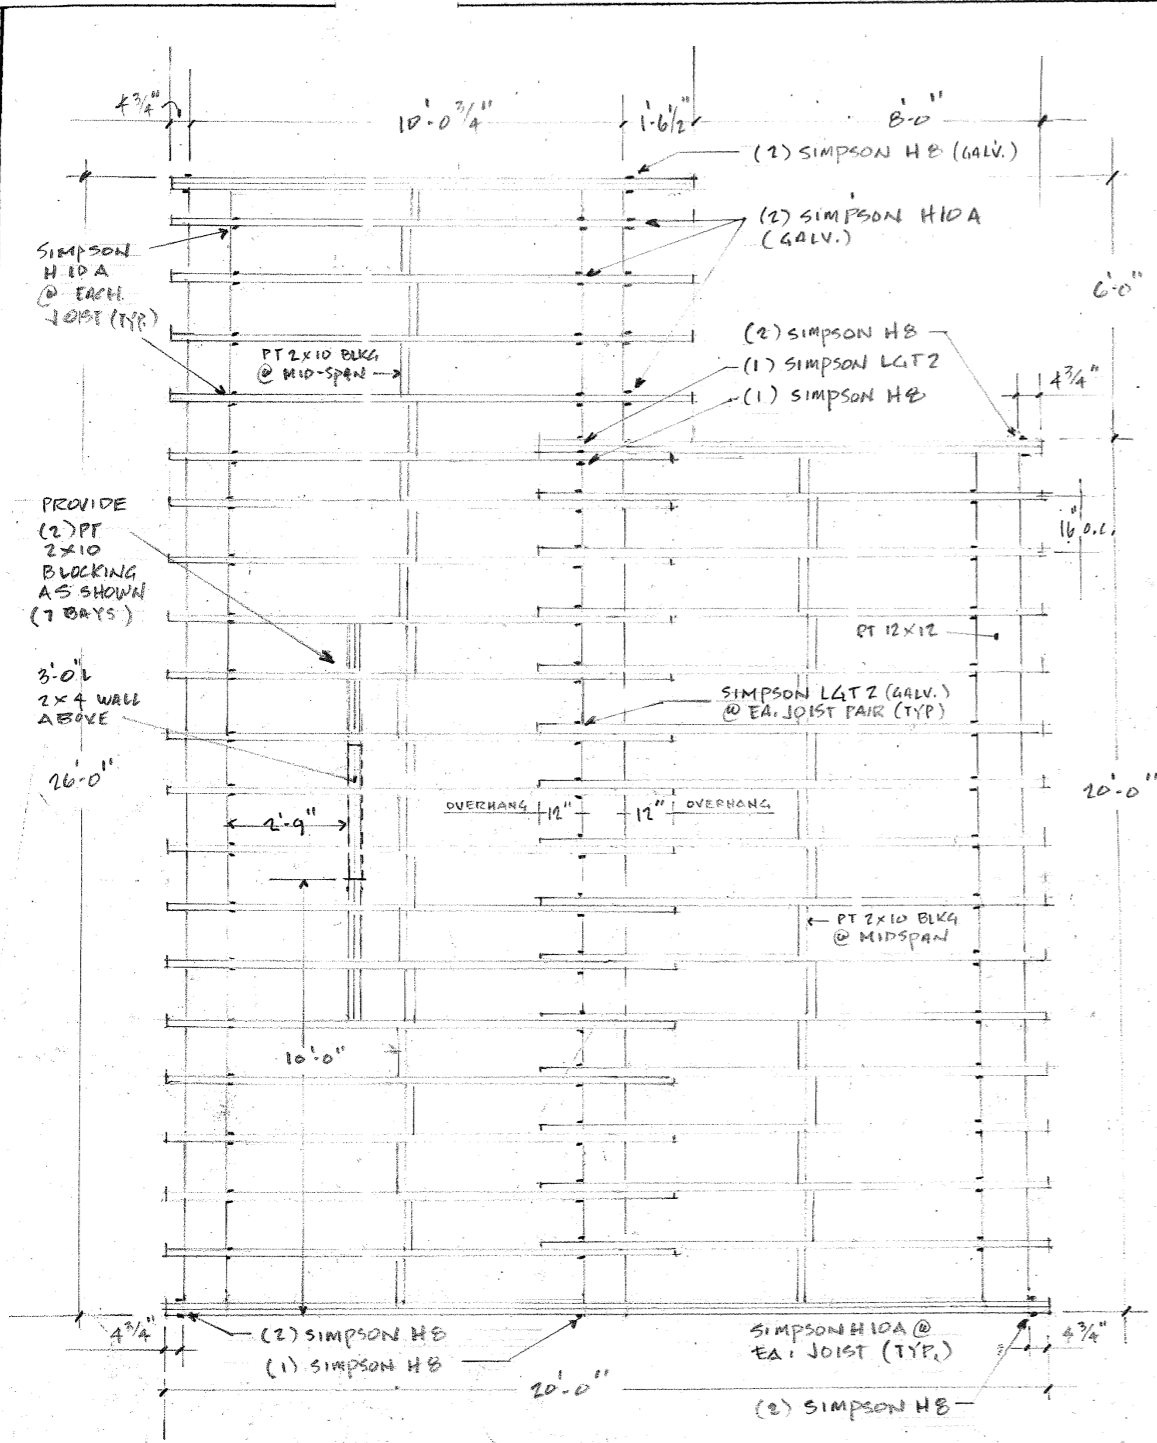 4 3/4"
10'-0 3/4"
1'-6 1/2"
8'-0"
(2) SIMPSON H8 (GALV.)
(2) SIMPSON H10A
(GALV.)
SIMPSON
H10A
@ EACH
JOIST (TYP.)
6'-0"
(2) SIMPSON H8
(1) SIMPSON LGT2
(1) SIMPSON H8
PT 2x10 BLKG
@ MID-SPAN
4 3/4"
PROVIDE
(2) PT
2x10
BLOCKING
AS SHOWN
(7 BAYS)
16" O.C.
PT 12x12
3'-0" L
2x4 WALL
ABOVE
SIMPSON LGT2 (GALV.)
@ EA. JOIST PAIR (TYP)
26'-0"
20'-0"
OVERHANG 12"
12" OVERHANG
2'-9"
PT 2x10 BLKG
@ MIDSPAN
10'-0"
4 3/4"
(2) SIMPSON H8
(1) SIMPSON H8
SIMPSON H10A @
EA. JOIST (TYP.)
4 3/4"
20'-0"
(2) SIMPSON H8